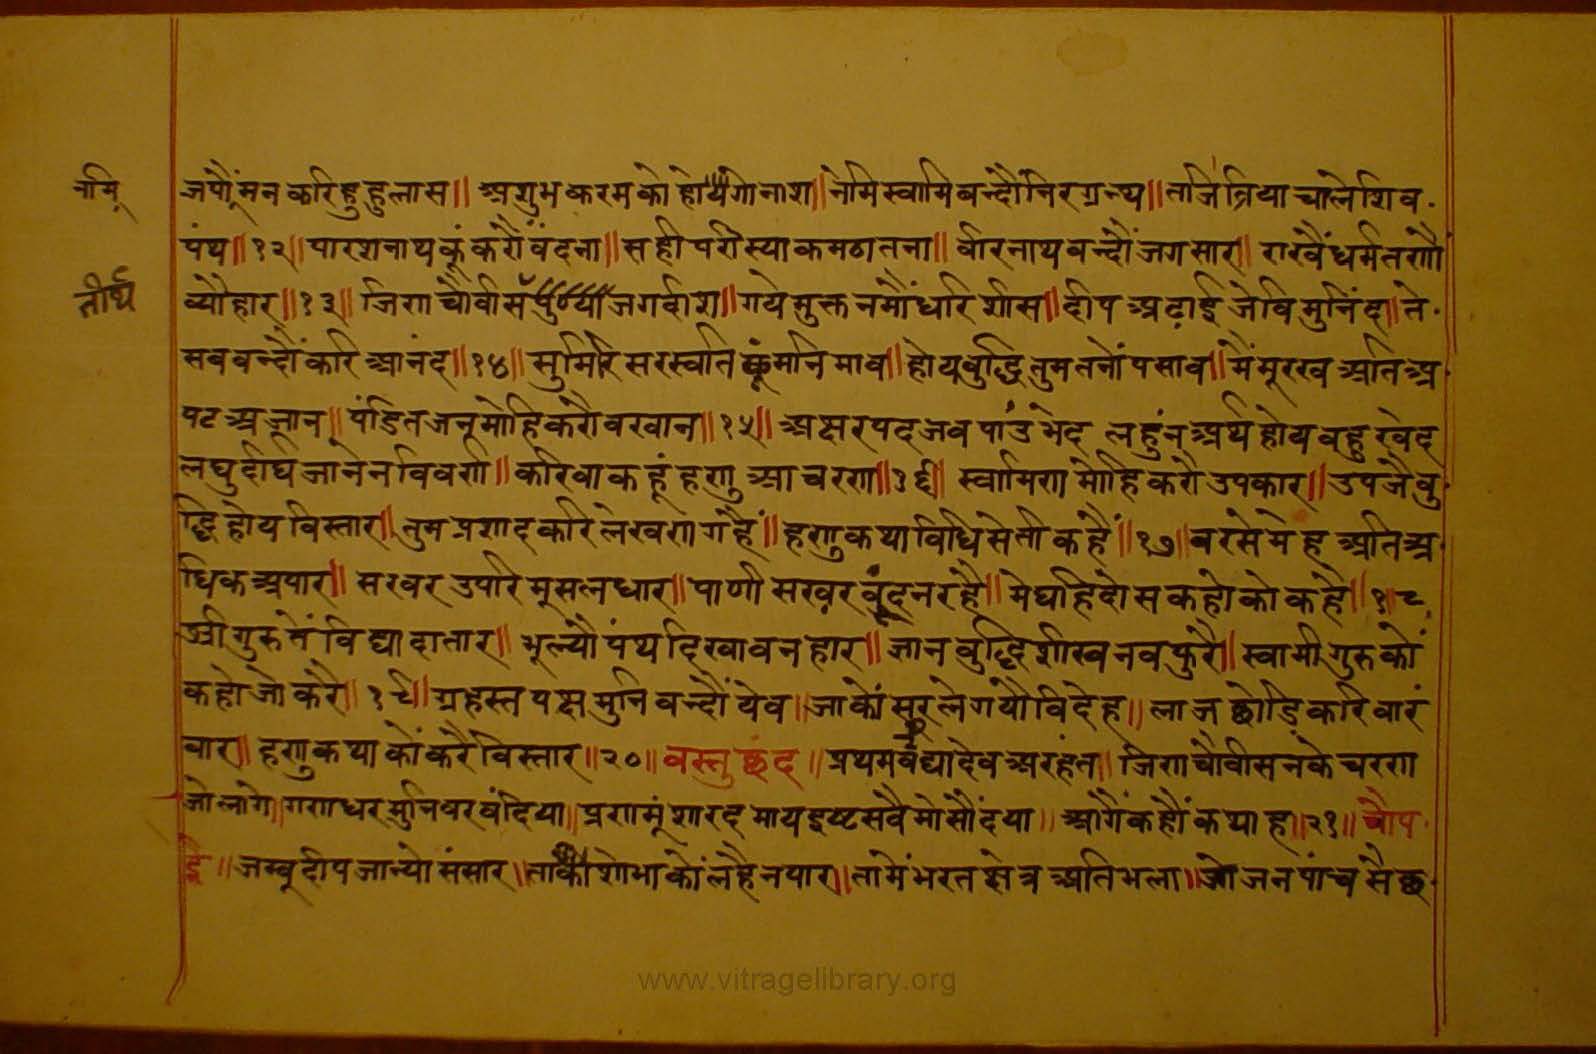 नमि
जपौं मन करि हु हुलास॥ अशुभ करम को होय नाश॥ नेमि स्वामि बन्दौं निरग्रन्थ॥ तजि त्रिया चाले शिव
पंथ॥१२॥ पारशनाथ कूं करौं वंदना॥ सही परीस्या कमठा तना॥ वीरनाथ वन्दौं जग सार॥ राखै धर्म तणौ
तीर्थ
व्यौहार॥१३॥ जिण चौवीस जगदीश॥ गये मुक्त नमौं धरि शीस॥ दीप अढ़ाई जेवि मुनिंद॥ ते
सब वन्दौं करि आनंद॥१४॥ सुमिरि सरस्वति कूं मनि भाव॥ होय वुद्धि तुम तनौं पसाव॥ मैं मूरख अति अ
पट अज्ञान॥ पंडित जन मोहि करौ वखान॥१५॥ अक्षर पद जव पांउं भेद लहुं न अर्थ होय वहु खेद
लघु दीर्घ जाने न विवर्ण॥ करिवा कहूं हणु आचरण॥१६॥ स्वामिण मोहि करौ उपकार॥ उपजै वु
द्धि होय विस्तार॥ तुम प्रशाद करि लेखण गहैं॥ हणु कथा विधि सेती कहैं॥१७॥ वरसे मेह अति अ
धिक अपार॥ सरवर उपरि मूसलधार॥ पाणी सरवर वूंद न रहै॥ मेघहि दोस कहो को कहे॥१८
श्री गुरु तें विद्या दातार॥ भूल्यौ पंथ दिखावनहार॥ ज्ञान वुद्धि शीख नव फुरै॥ स्वामी गुरु कों
कहो जो करै॥१९॥ ग्रहस्त पक्ष मुनि वन्दौं येव॥ जाकों सुर ले गयौ विदेह॥ लाज छोडि करि वारं
वार॥ हणु कथा कों करै विस्तार॥२०॥ वस्तु छंद॥ प्रथम वंद्या देव अरहंत॥ जिण चौवीसन के चरण
जो लागे॥ गणधर मुनिवर वंदिया॥ प्रणमूं शारद माय इष्ट सवै मो सौं दया॥ आगैं कहौं कथा ह॥२१॥ चौप
ई॥ जम्बूदीप जान्यो संसार॥ ताकी शोभा कों लहै न पार॥ तामें भरत क्षेत्र अति भला॥ जोजन पांच सै छ
www.vitragelibrary.org